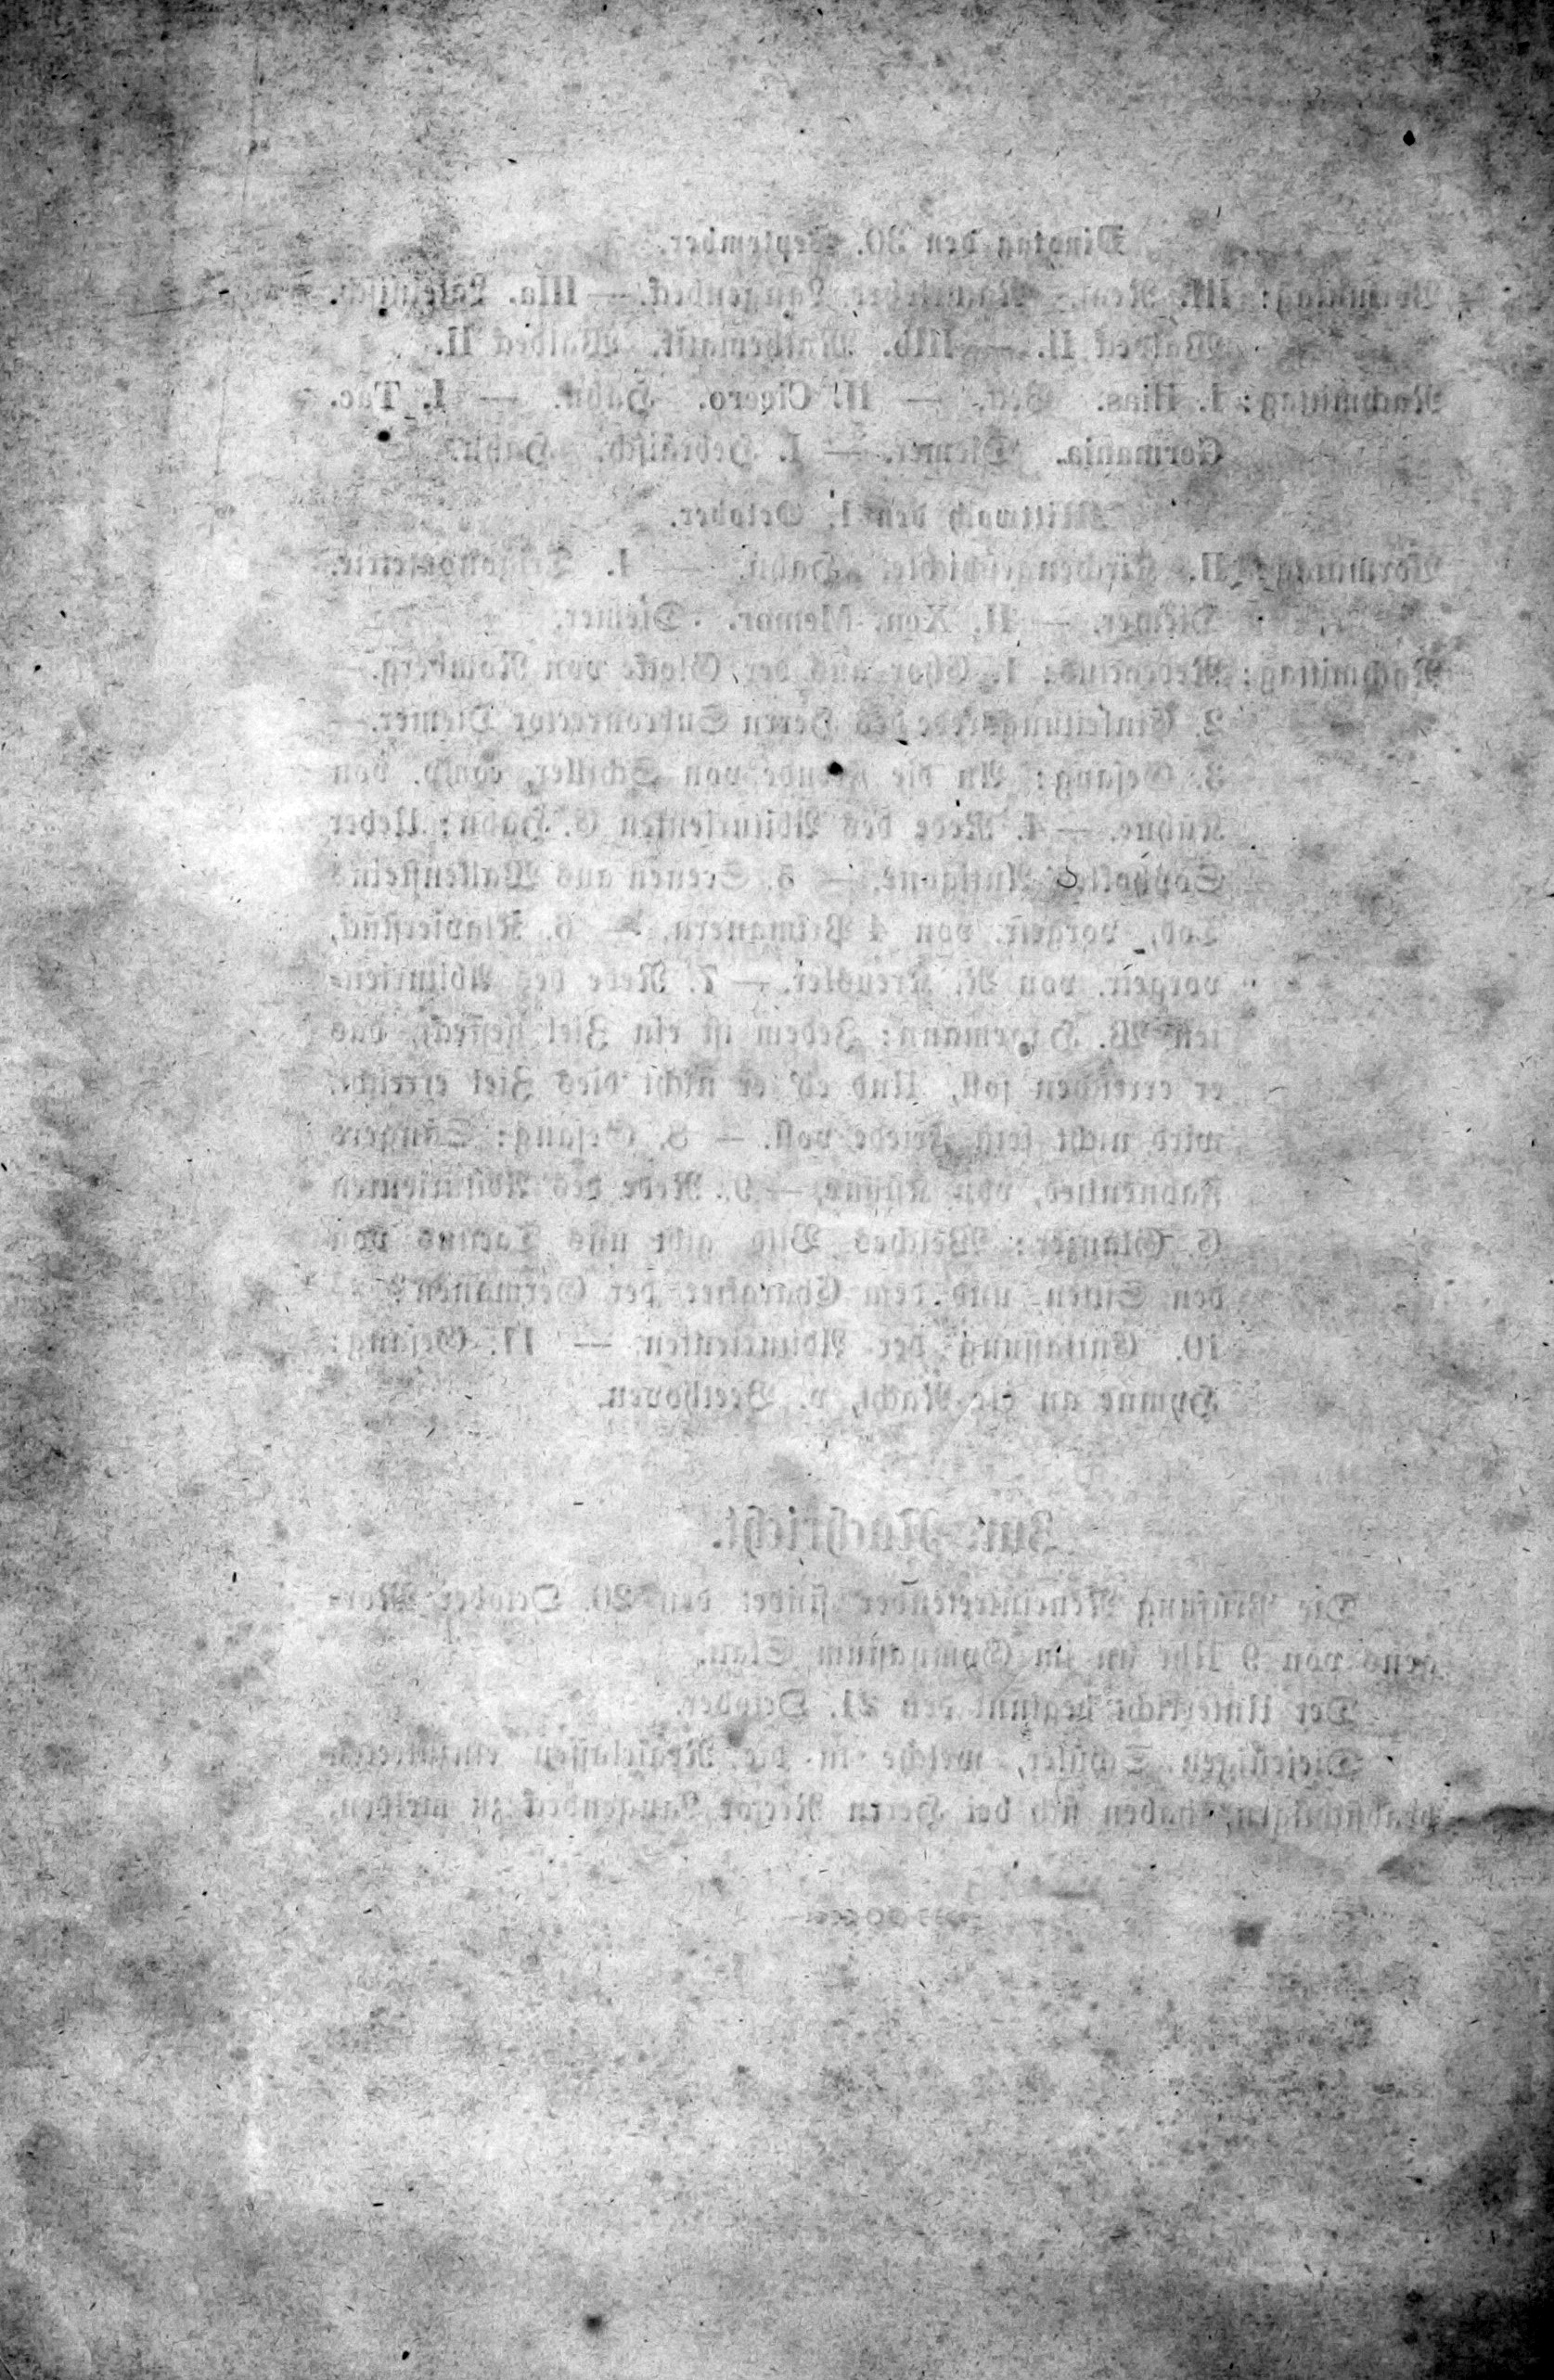 Dinstag den 30. September.
Vormittag: III. Real. Langenbeck. — IIIa.
Walbeck II. — IIIb. Mathematik. Walbeck II.
Nachmittag: I. Ilias. — II. Cicero. Hahn. — I. Tac.
Germania. Diemer. — I. Hebräisch. Hahn.
Mittwoch den 1. October.
Vormittag: II. Kirchengeschichte. Hahn. — I.
Diemer. — II. Xen. Memor. Diemer.
Nachmittag: Redeactus: 1. Chor aus der Glocke von Romberg. —
2. Einleitungsrede des Herrn Subconrector Diemer. —
3. Gesang: An die Freude von Schiller, comp. von
Kühne. — 4. Rede des Abiturienten C. Hahn: Ueber
Sophokles Antigone. — 5. Scenen aus Wallensteins
Tod, vorgetr. von 4 Primanern. — 6. Klavierstück,
vorgetr. von R. — 7. Rede des Abiturien-
ten W. Jedem ist ein Ziel gesteckt, das
er erreichen soll, Und eh' er nicht dies Ziel erreicht,
wird nicht sein Friede voll. — 8. Gesang: Sängers
von Kühne. — 9. Rede des Abiturienten
C. Welches Bild gibt uns Tacitus von
den Sitten und dem Charakter der Germanen?
10. Entlassung der Abiturienten. — 11. Gesang:
Hymne an die Nacht, v. Beethoven.
Zur Nachricht.
Die Prüfung Neueintretender findet den 20. October Mor-
gens von 9 Uhr an im Gymnasium Statt.
Der Unterricht beginnt den 21. October.
Diejenigen Schüler, welche in die Realclassen
beabsichtigen, haben sich bei Herrn Rector Langenbeck zu melden.